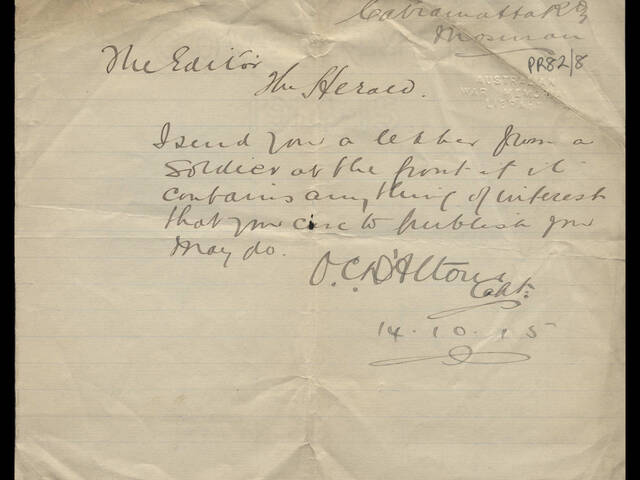 Cabramatta Rd
Mosman
PR82/8
AUSTRALIAN
WAR MEMORIAL
LIBRARY
The Editor
The Herald.
I send you a letter from a
soldier at the front if it
contains anything of interest
that you care to publish you
may do.
O. C. D'Alton
Capt:
14.10.15